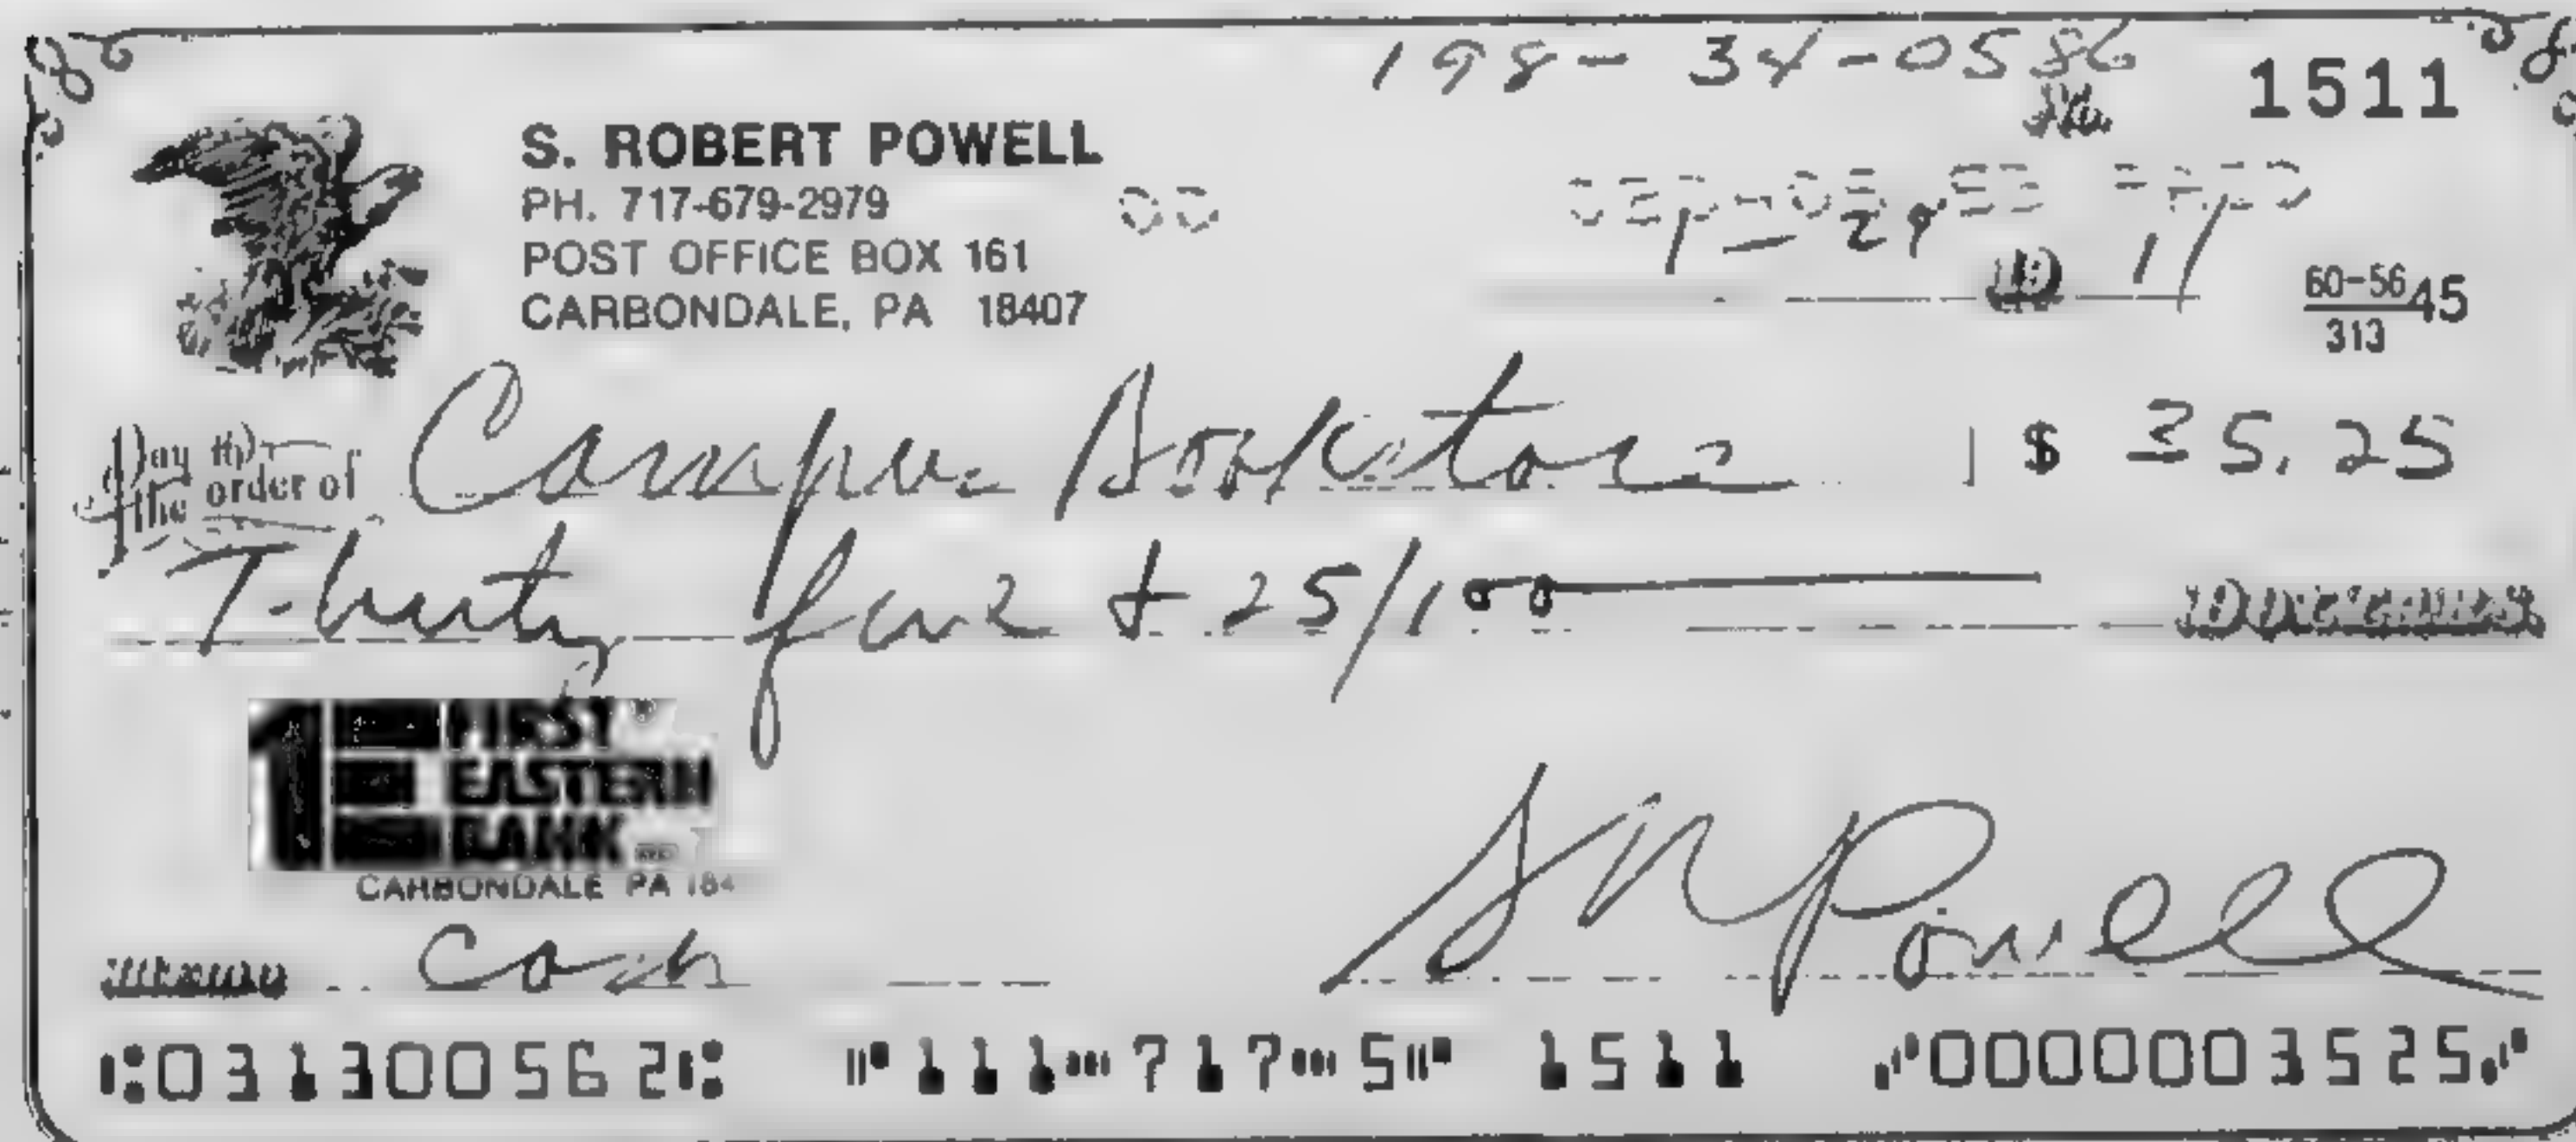 198-34-0586
1511
S. ROBERT POWELL
PH. 717-679-2979
POST OFFICE BOX 161
CARBONDALE, PA 18407
60-56 45
313
Pay to the order of Campus Bookstore $ 35.25
Thirty five + 25/100 DOLLARS
1 FIRST
EASTERN
BANK
CARBONDALE PA 184
Memo Cash SRPowell
⑆031300562⑆ ⑈111⑉717⑉5⑈ 1511 ⑇0000003525⑇